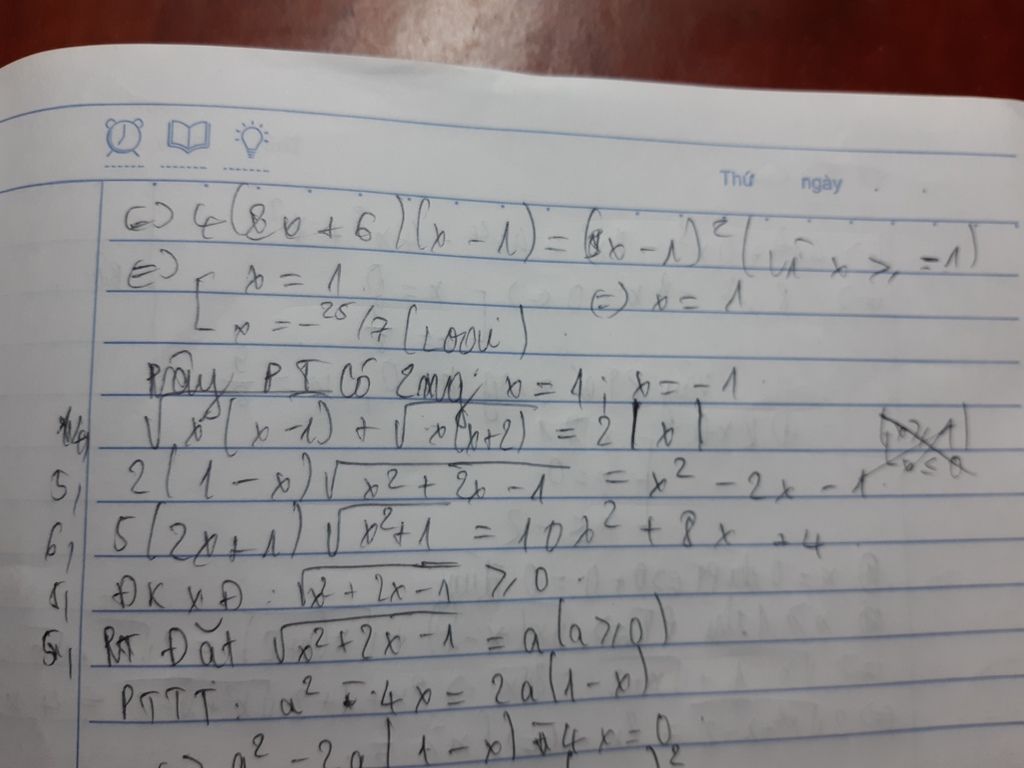 Thứ ngày
<=> 4(8x+6)(x-1) = (x-1)² (vì x ≥ -1)
<=> [ x = 1 <=> x = 1
x = -25/7 (Loại)
PT có 2 nghiệm x = 1; x = -1
√x(x-1) + √x(x+2) = 2|x|
5, 2(1-x)√x²+2x-1 = x² - 2x - 1
6, 5(2x+1)√x²+1 = 10x² + 8x + 4
5, ĐKXĐ: √x²+2x-1 ≥ 0
5, Đặt √x²+2x-1 = a (a≥0)
PTTT: a² - 4x = 2a(1-x)
<=> a² - 2a(1-x) - 4x = 0